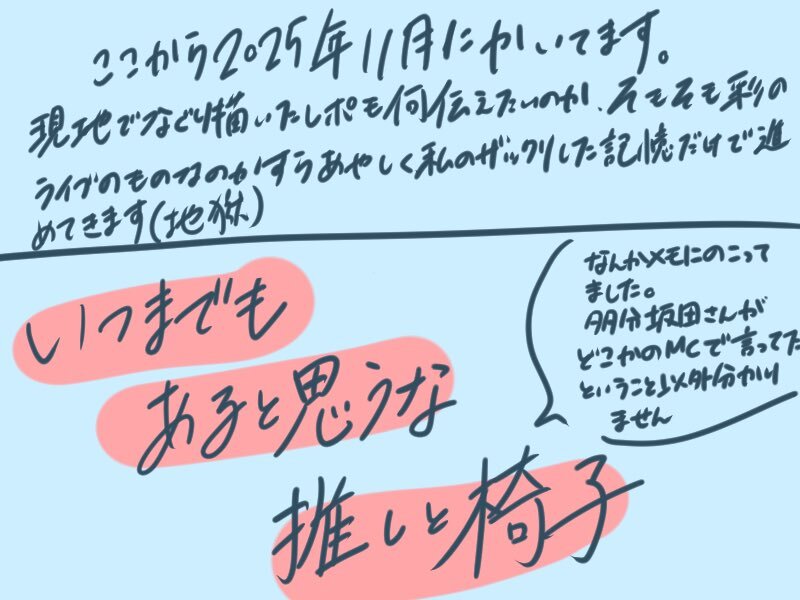 ここから2025年11月にかいてます。
現地でなぐり描いたレポも何伝えたいのか、そもそも彩の
ライブのものなのかすらあやしく私のザックリした記憶だけで進
めてきます(地獄)
なんかメモにのこって
ました。
多分坂田さんが
どこかのMCで言ってた
ということ以外分かり
ません
いつまでも
あると思うな
推しと椅子